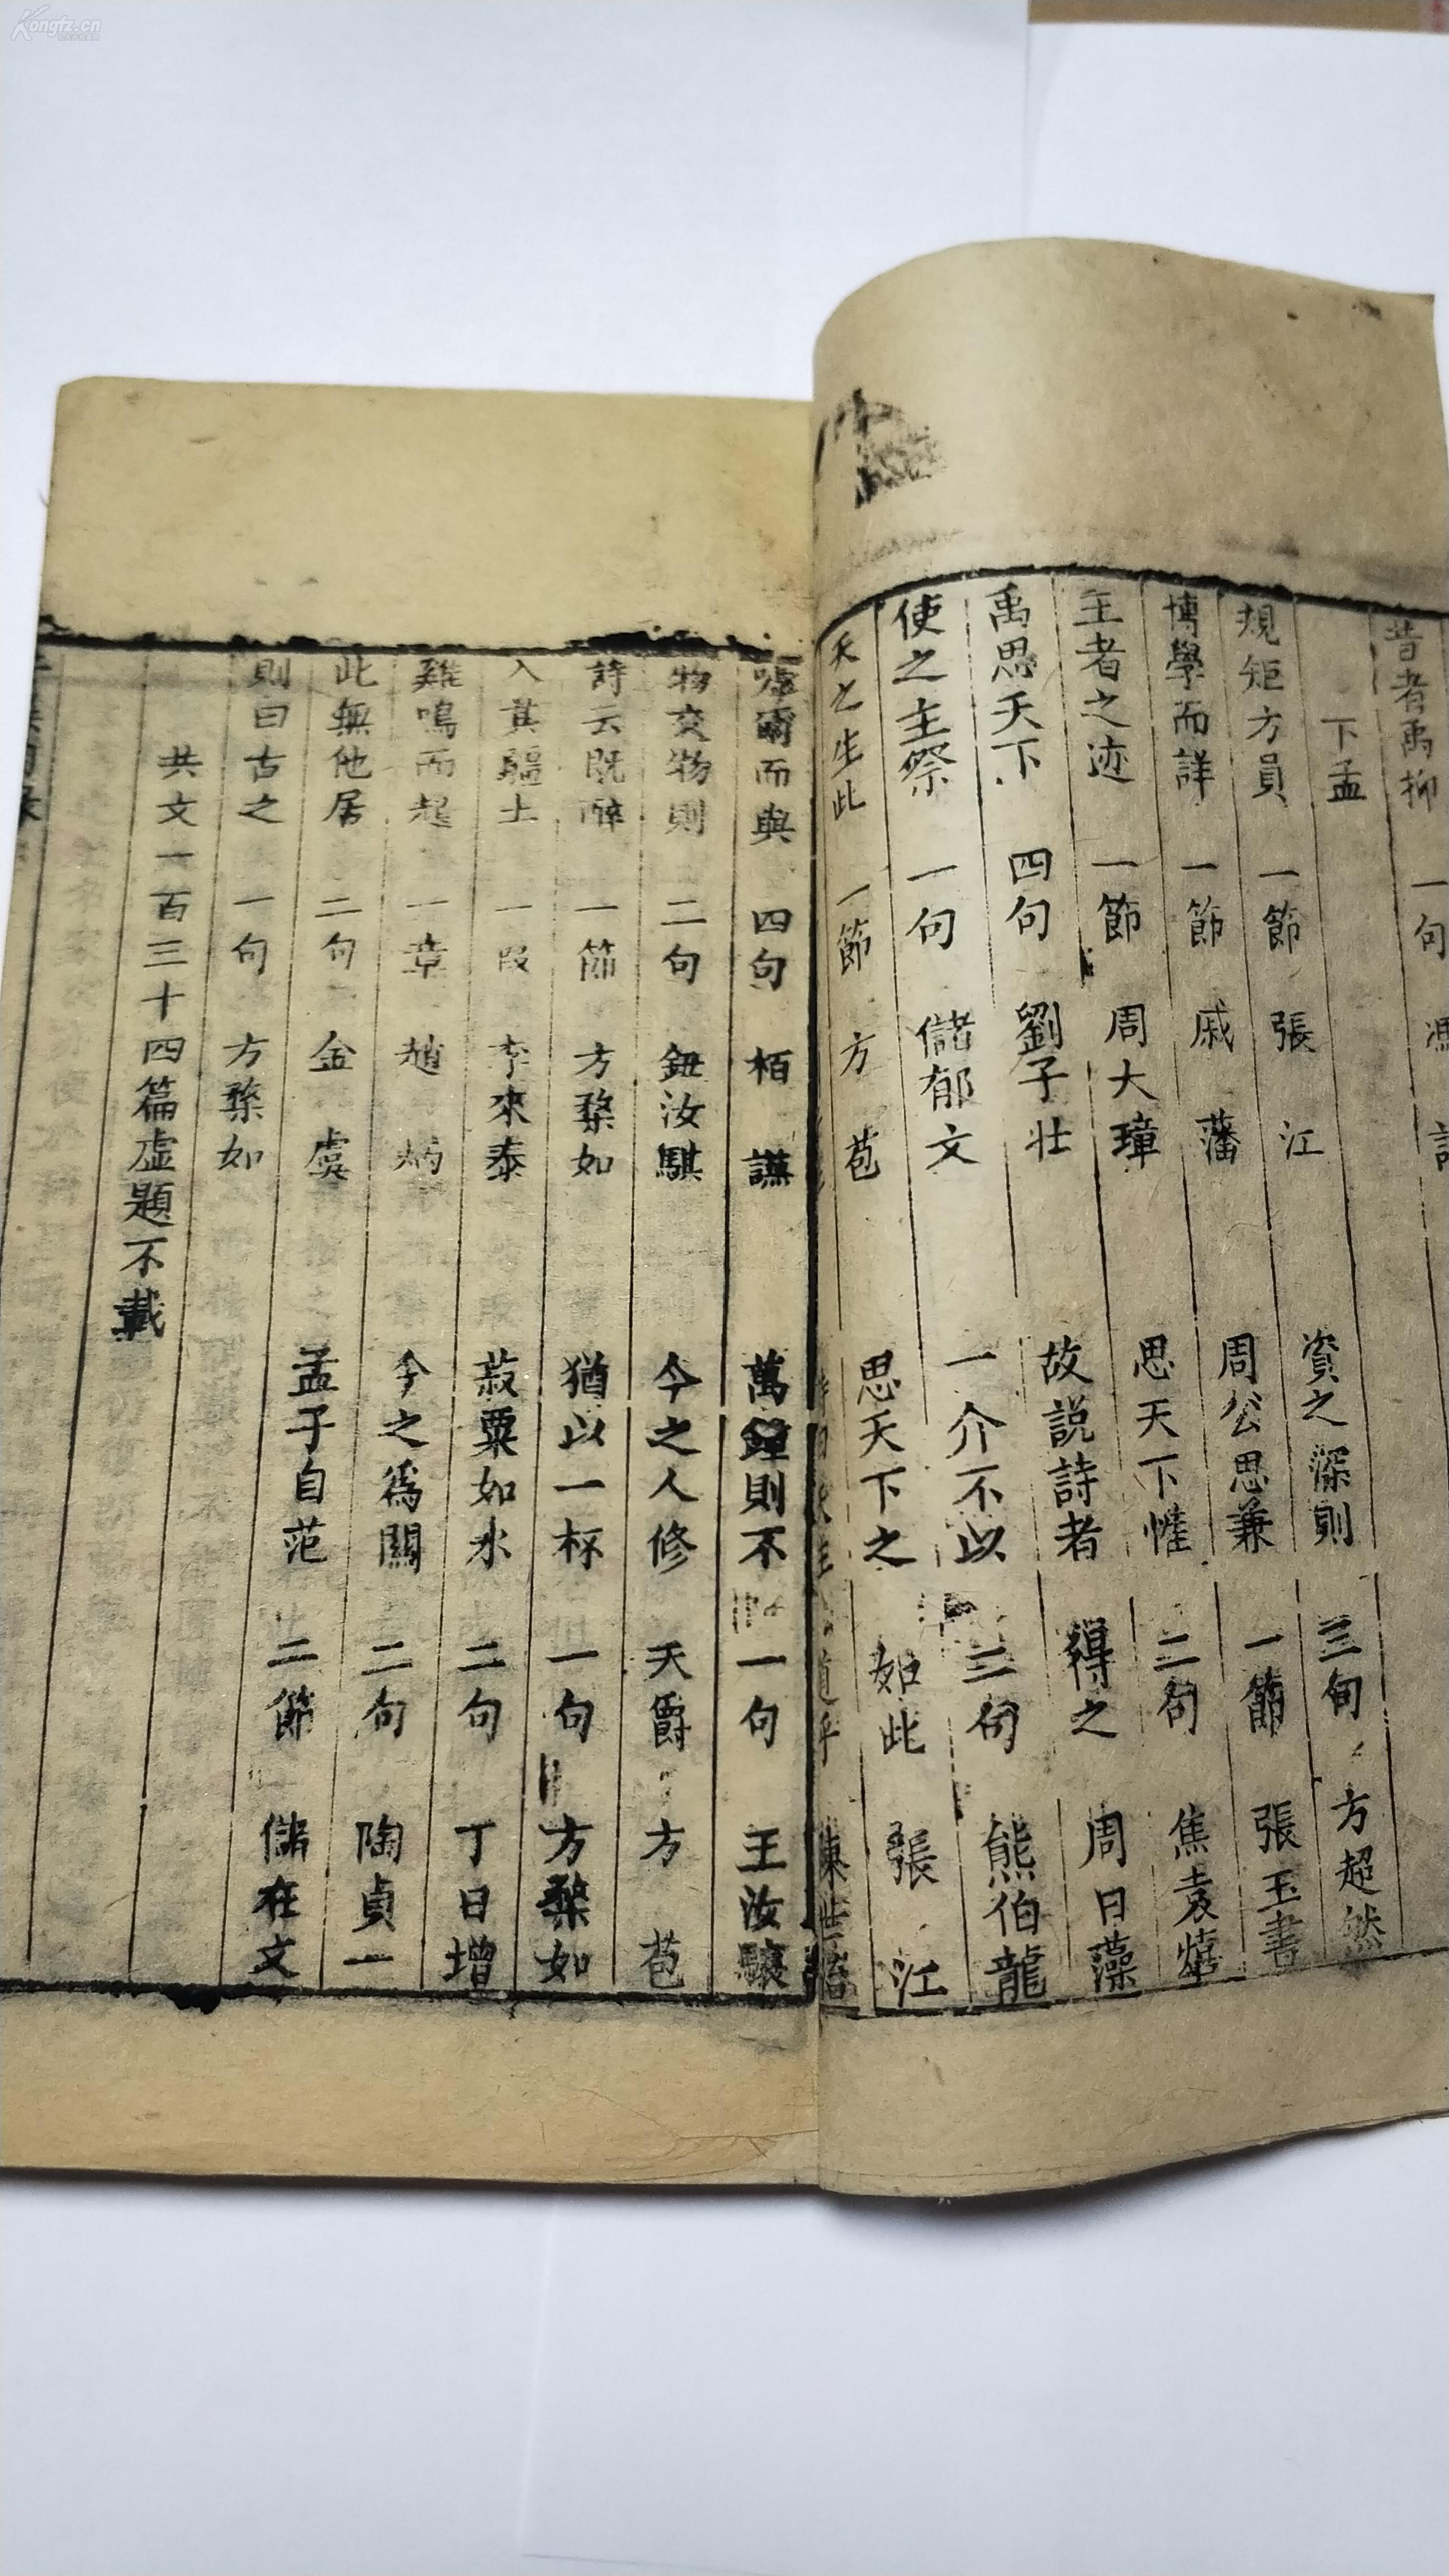 昔者禹抑 一句
下孟
規矩方員 一節 張江 資之深則 三句 方超然
博學而詳 一節 戚藩 周公思兼 一節 張玉書
王者之迹 一節 周大璋 思天下惟 二句 焦袁熹
禹思天下 四句 劉子壯 故説詩者 得之 周日藻
使之主祭 一句 儲郁文 一介不以 三句 熊伯龍
天之生此 一節 方苞 思天下之 如此 張江
嘑爾而與 四句 栢謙 萬鐘則不 一句 王汝驤
物交物則 二句 鈕汝騏 今之人修 天爵 方苞
詩云既醉 一節 方楘如 猶以一杯 一句 方楘如
入其疆土 一段 李來泰 菽粟如水 二句 丁日增
雞鳴而起 一章 趙炳 今之爲關 二句 陶貞一
此無他居 二句 金虞 孟子自范 二節 儲在文
則曰古之 一句 方楘如
共文一百三十四篇虛題不載
Kongfz.cn